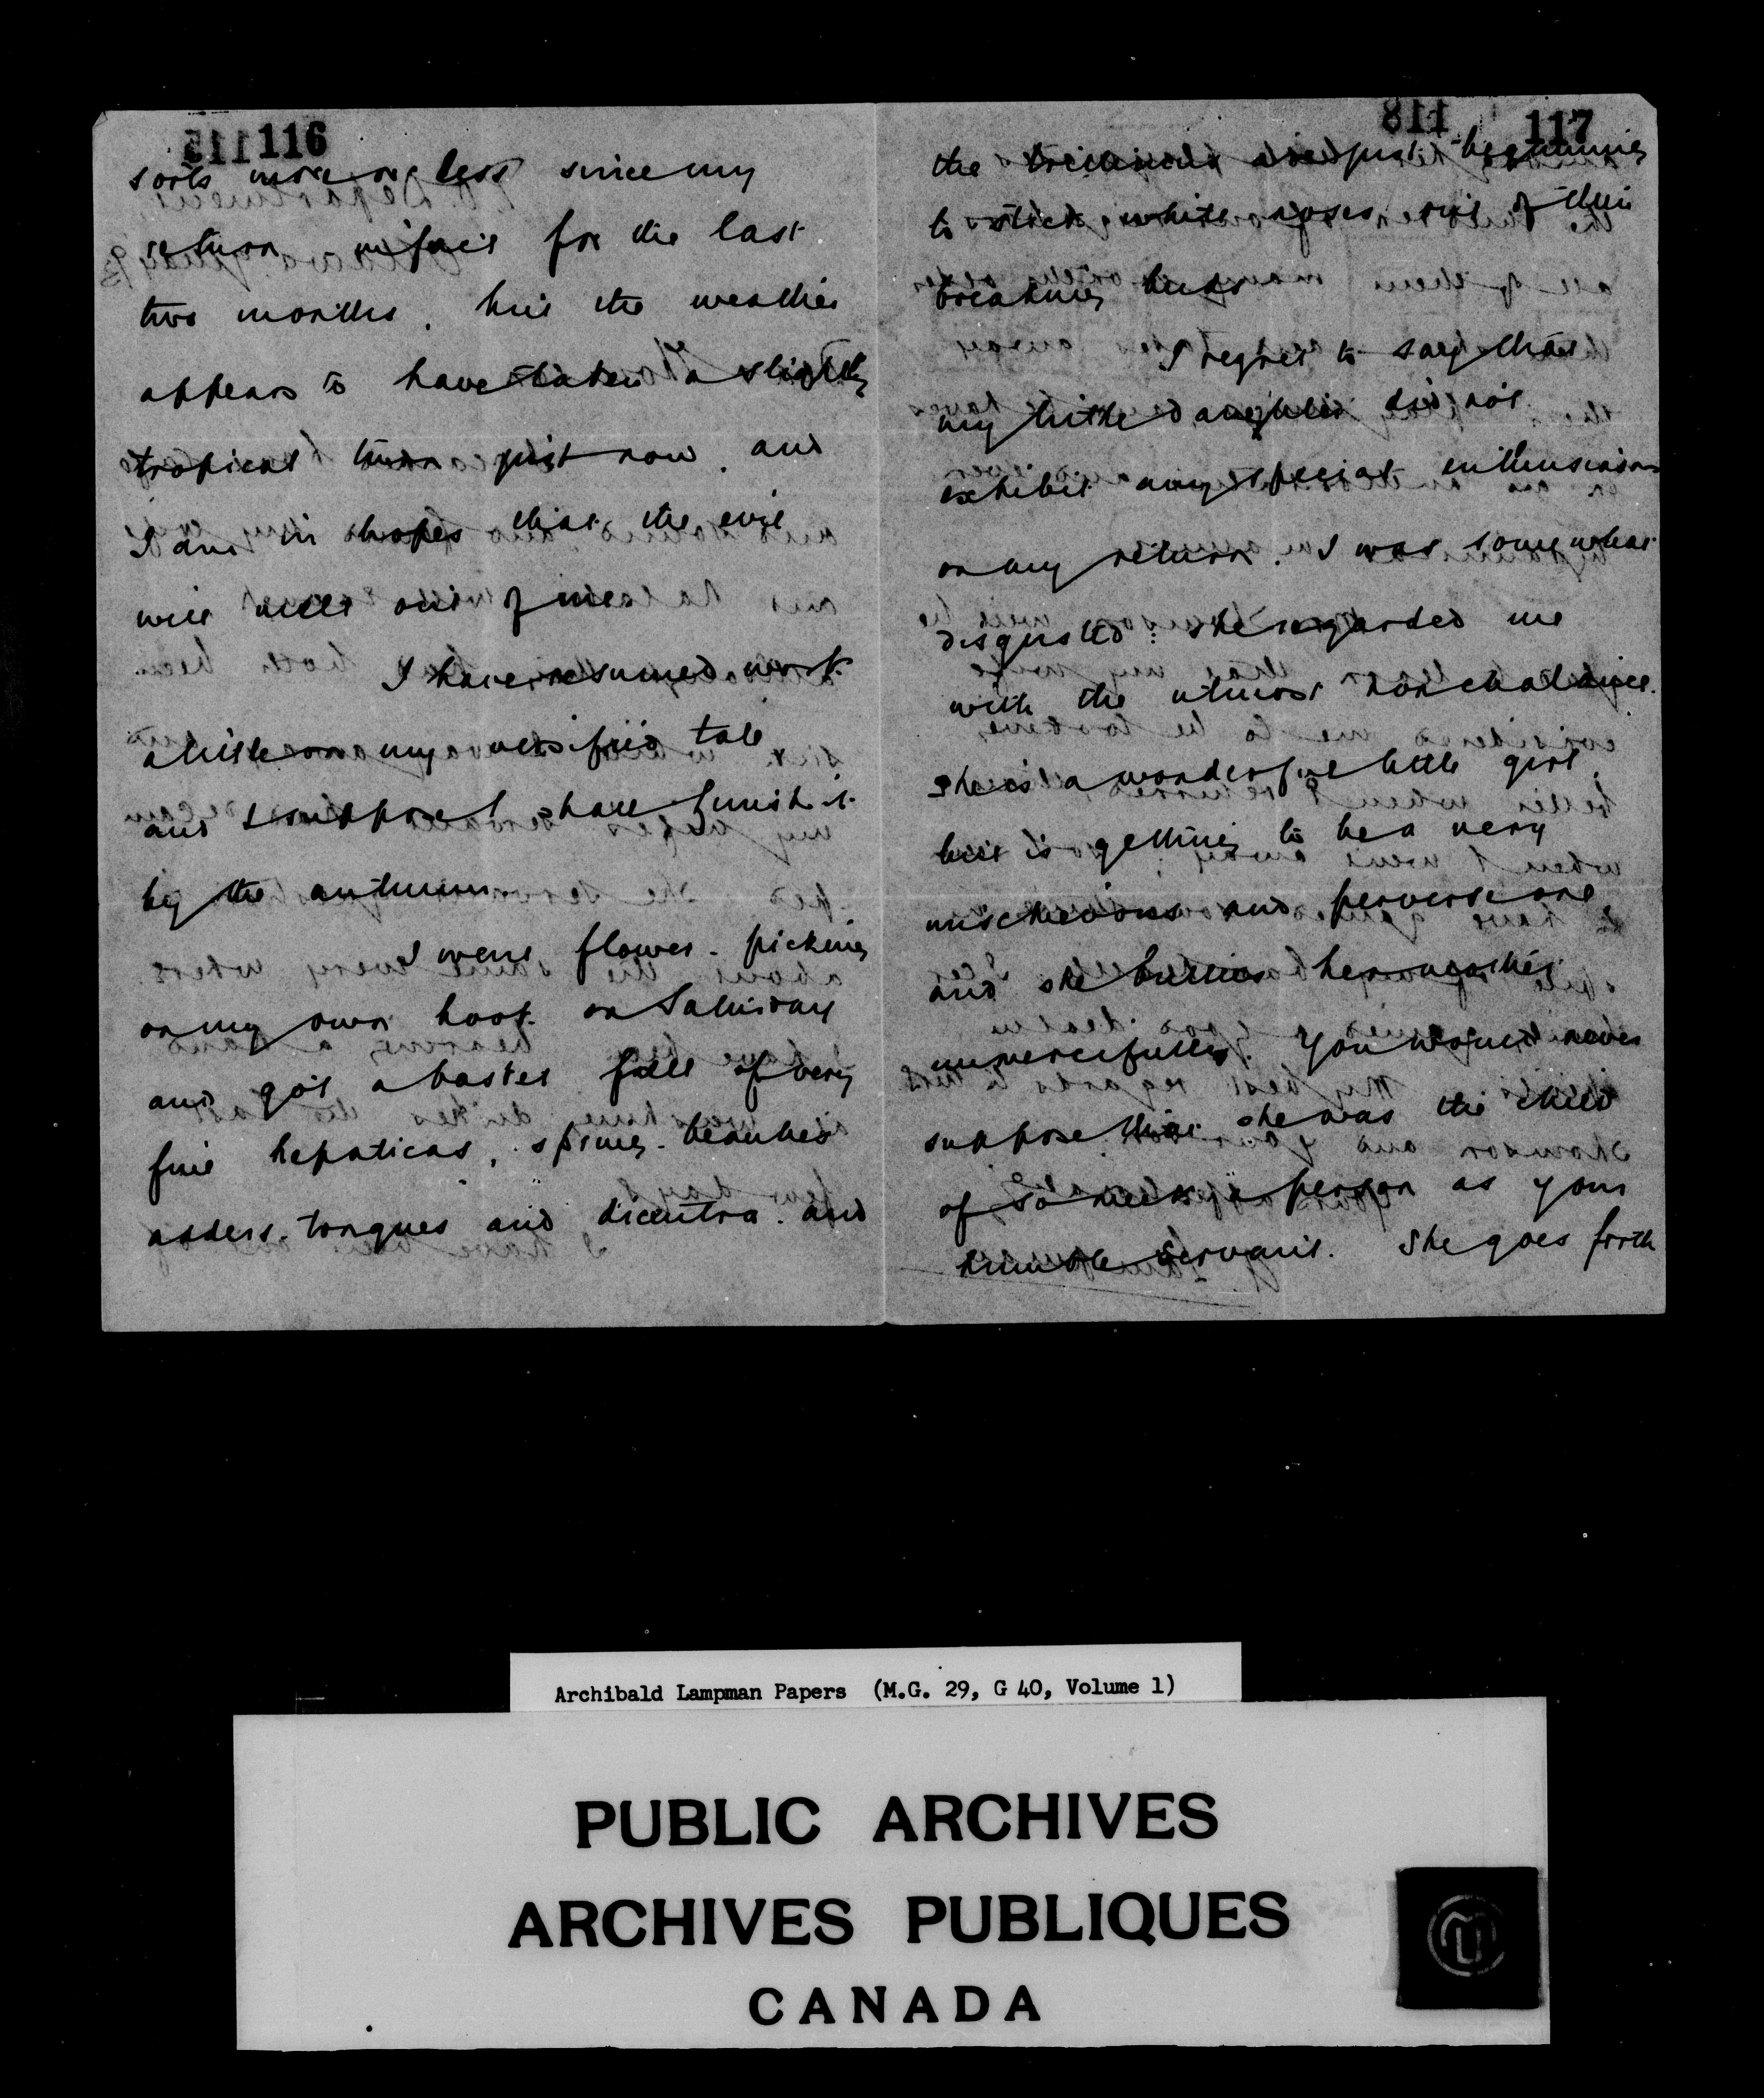 116
sorts more or less since my
return in fact for the last
two months. but the weather
appears to have taken a slightly
tropical turn just now. and
I am in hopes that the evil
will melt out of me
I have resumed work
a little on my versified tale
and I suppose I shall finish it
by the autumn
I went flower-picking
on my own hook on Saturday
and got a basket full of very
fine hepaticas, spring-beauties
adders-tongues and dicentra. and
118 117
the trilliums are just beginning
to stick white noses out of their
breaking buds
I regret to say that
my little daughter did not
exhibit any special enthusiasm
on my return. I was somewhat
disgusted: she regarded me
with the utmost nonchalance.
she is a wonderful little girl,
but is getting to be a very
mischevious and perverse one,
and she bullies her mother
unmercifully. You would never
suppose that she was the child
of so meek a person as your
humble servant. She goes forth
Archibald Lampman Papers (M.G. 29, G 40, Volume 1)
PUBLIC ARCHIVES
ARCHIVES PUBLIQUES
CANADA